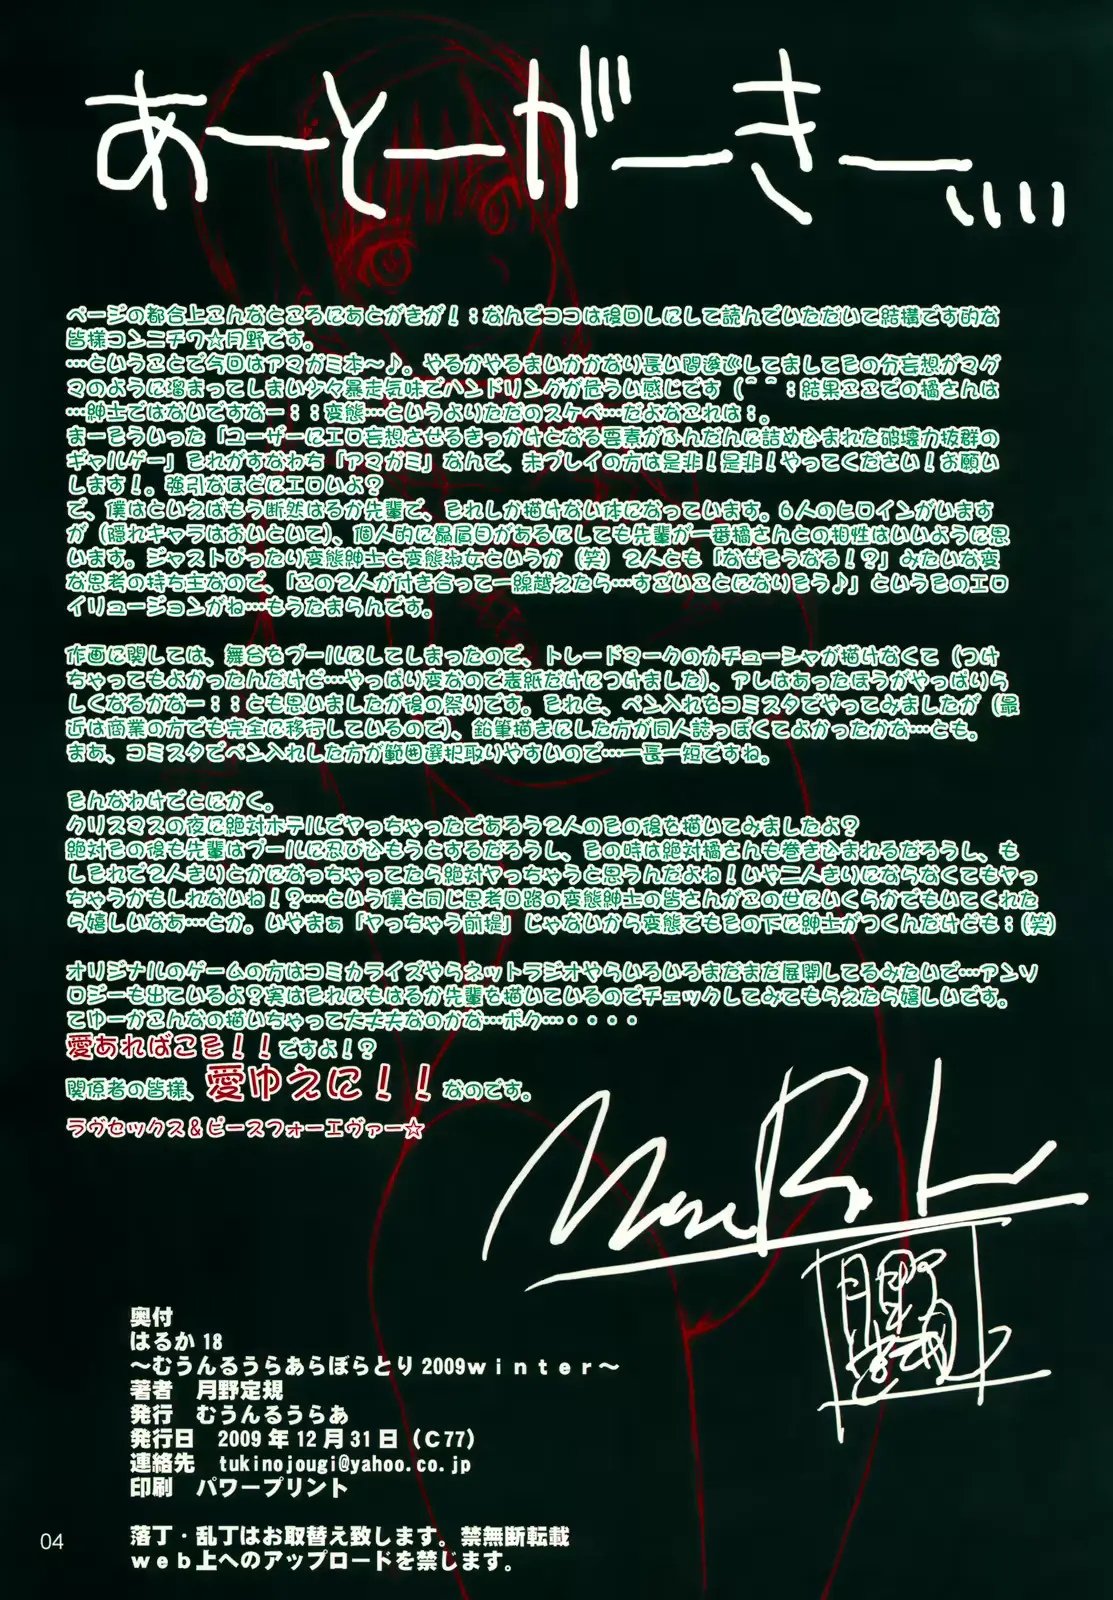 あーとーがーきー、、、、、
ページの都合上こんなところにあとがきが！；なんでココは後回しにして読んでいただいて結構です的な
皆様コンニチワ☆月野です。
…ということで今回はアマガミ本～♪。やるかやるまいかかなり長い間逡巡してましてその分妄想がマグ
マのように溜まってしまい少々暴走気味でハンドリングが危うい感じです（＾＾；結果ここでの橘さんは
…紳士ではないですなー；；変態…というよりただのスケベ…だよなこれは；。
まーそういった「ユーザーにエロ妄想させるきっかけとなる要素がふんだんに詰め込まれた破壊力抜群の
ギャルゲー」それがすなわち「アマガミ」なんで、未プレイの方は是非！是非！やってください！お願い
します！。強引なほどにエロいよ？
で、僕はといえばもう断然はるか先輩で、それしか描けない体になっています。6人のヒロインがいます
が（隠れキャラはおいといて）、個人的に贔屓目があるにしても先輩が一番橘さんとの相性はいいように思
います。ジャストぴったり変態紳士と変態淑女というか（笑）2人とも「なぜそうなる！？」みたいな変
な思考の持ち主なので、「この2人が付き合って一線越えたら…すごいことになりそう♪」というそのエロ
イリュージョンがね…もうたまらんです。
作画に関しては、舞台をプールにしてしまったので、トレードマークのカチューシャが描けなくて（つけ
ちゃってもよかったんだけど…やっぱり変なので表紙だけにつけました）、アレはあったほうがやっぱりら
しくなるかなー；；とも思いましたが後の祭りです。それと、ペン入れをコミスタでやってみましたが（最
近は商業の方でも完全に移行しているので）、鉛筆描きにした方が同人誌っぽくてよかったかな…とも。
まあ、コミスタでペン入れした方が範囲選択取りやすいので…一長一短ですね。
そんなわけでとにかく。
クリスマスの夜に絶対ホテルでヤっちゃったであろう2人のその後を描いてみましたよ？
絶対その後も先輩はプールに忍び込もうとするだろうし、その時は絶対橘さんも巻き込まれるだろうし、も
しそれで2人きりとかになっちゃってたら絶対ヤっちゃうと思うんだよね！いや二人きりにならなくてもヤっ
ちゃうかもしれないね！？…という僕と同じ思考回路の変態紳士の皆さんがこの世にいくらかでもいてくれた
ら嬉しいなあ…とか。いやまぁ「ヤっちゃう前提」じゃないから変態でもその下に紳士がつくんだけども；(笑)
オリジナルのゲームの方はコミカライズやらネットラジオやらいろいろまだまだ展開してるみたいで…アンソ
ロジーも出ているよ？実はそれにもはるか先輩を描いているのでチェックしてみてもらえたら嬉しいです。
てゆーかこんなの描いちゃって大丈夫なのかな…ボク…・・・・
愛あればこそ！！ですよ！？
関係者の皆様、愛ゆえに！！なのです。
ラヴセックス＆ピースフォーエヴァー☆
奥付
はるか18
～むうんるうらあらぼらとり2009winter～
著者　月野定規
発行　むうんるうらあ
発行日　2009年12月31日（C77）
連絡先　tukinojougi@yahoo.co.jp
印刷　パワープリント
落丁・乱丁はお取替え致します。禁無断転載
web上へのアップロードを禁じます。
04